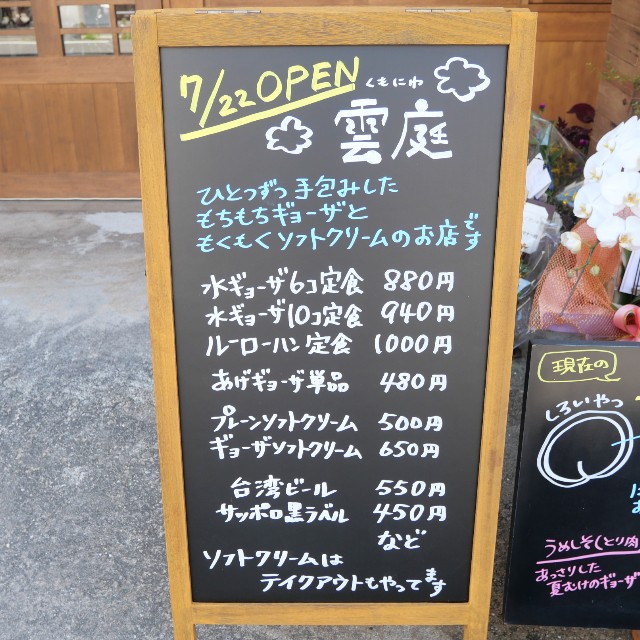 7/22 OPEN
くもにわ
雲庭
ひとつずつ手包みした
もちもちギョーザと
もくもくソフトクリームのお店です
水ギョーザ6コ定食 880円
水ギョーザ10コ定食 940円
ルーローハン定食 1000円
あげギョーザ単品 480円
プレーンソフトクリーム 500円
ギョーザソフトクリーム 650円
台湾ビール 550円
サッポロ黒ラベル 450円
など
ソフトクリームは
テイクアウトもやってます
現在の
しろいやつ
うめしそ(とり肉
あっさりした
夏むけのギョーザ